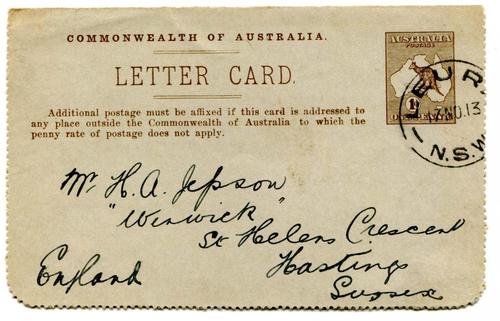 COMMONWEALTH OF AUSTRALIA.
LETTER CARD.
Additional postage must be affixed if this card is addressed to
any place outside the Commonwealth of Australia to which the
penny rate of postage does not apply.
AUSTRALIA
POSTAGE
1d
ONE PENNY
EUR
NO.13
N.S.W
Mr H. A. Jepson
"Werwick"
St Helens Crescent
Hastings
Sussex
England